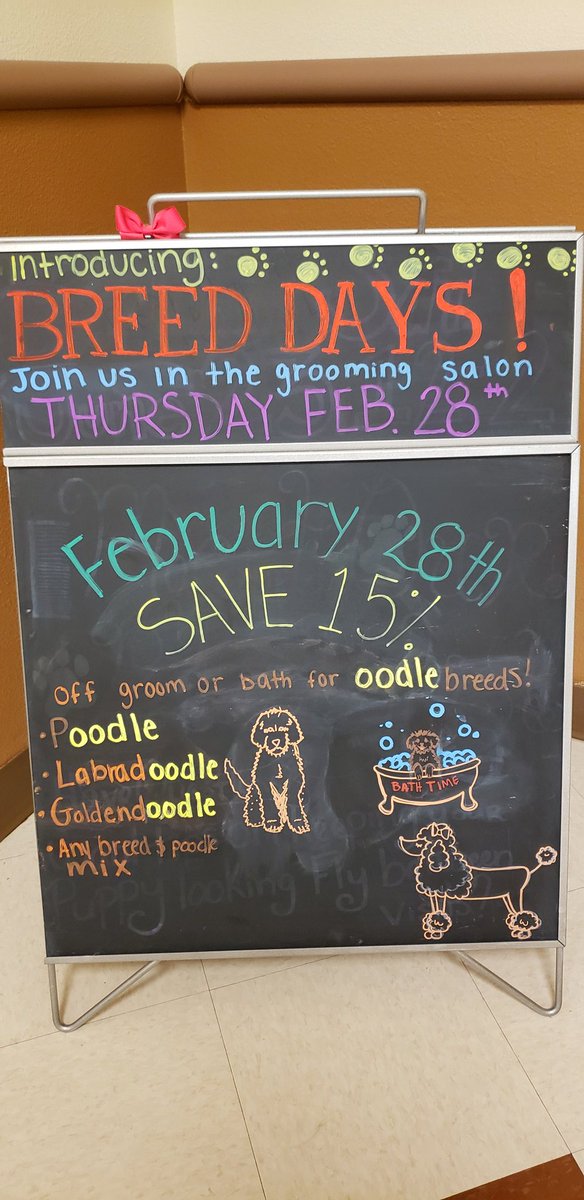 Introducing:
BREED DAYS!
Join us in the grooming salon
THURSDAY FEB. 28th
February 28th
SAVE 15%
off groom or bath for oodle breeds!
• Poodle
• Labradoodle
• Goldendoodle
• Any breed & poodle
mix
BATH TIME
Puppy looking Fly